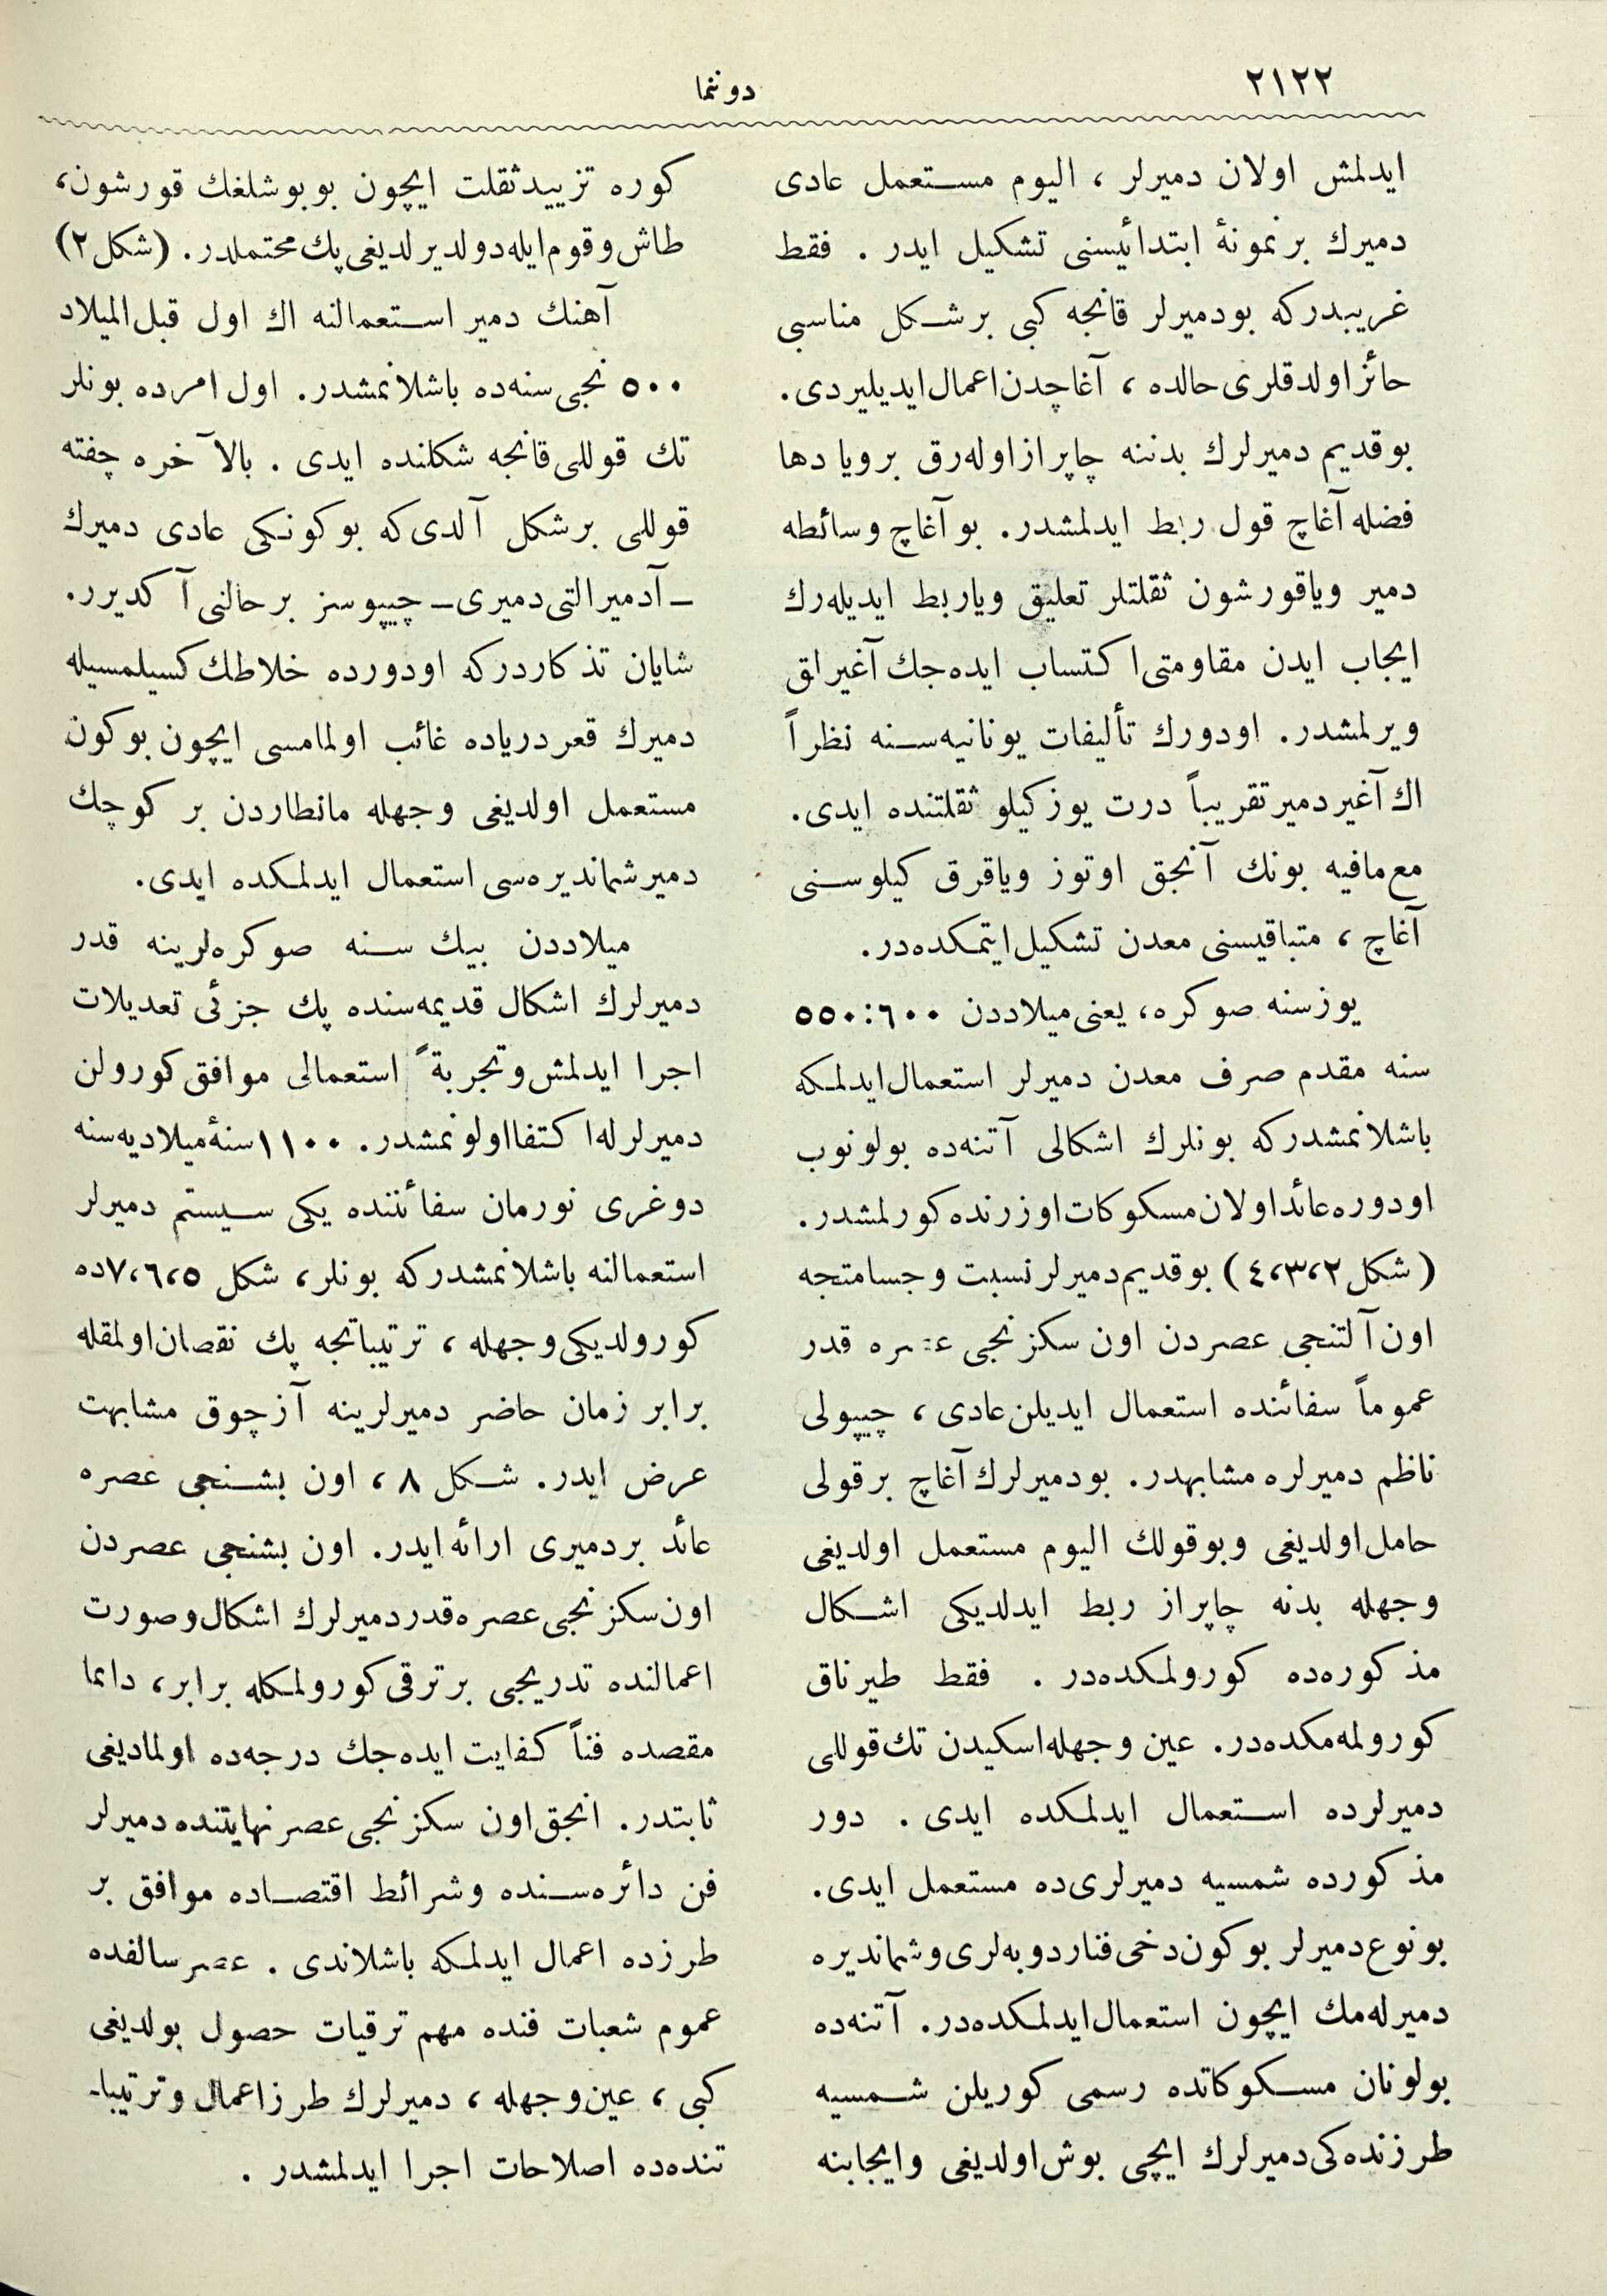 ٢١٢٢
دوننما
ايدلمش اولان دميرلر ، اليوم مستعمل عادى
دميرك بر نمونهٔ ابتدائيسنى تشكيل ايدر . فقط
غريبدركه بودميرلر قانجه كبى بر شكل مناسبى
حائز اولدقلرى حالده ، آغاچدن اعمال ايديليردى.
بو قديم دميرلرك بدننه چاپراز اوله‌رق بر ويا دها
فضله آغاچ قول ربط ايدلمشدر. بو آغاچ وسائطه
دمير وياقورشون ثقلتلر تعليق وياربط ايديله‌رك
ايجاب ايدن مقاومتى اكتساب ايده‌جك آغيرلق
ويرلمشدر. اودورك تأليفات يونانيه‌سنه نظراً
اك آغير دمير تقريباً درت يوز كيلو ثقلتنده ايدى.
مع‌مافيه بونك آنجق اوتوز وياقرق كيلوسنى
آغاچ ، متباقيسنى معدن تشكيل ايتمكده‌در.
يوز سنه صوكره، يعنى ميلاددن ٦٠٠:٥٥٠
سنه مقدم صرف معدن دميرلر استعمال ايدلمكه
باشلانمشدركه بونلرك اشكالى آتنه‌ده بولونوب
اودوره عائد اولان مسكوكات اوزرنده كورلمشدر.
(شكل ٤،٣،٢) بو قديم دميرلر نسبت وجسامتجه
اون آلتنجى عصردن اون سكزنجى عصره قدر
عموماً سفائنده استعمال ايديلن عادى ، چيپولى
ناظم دميرلره مشابهدر. بودميرلرك آغاچ بر قولى
حامل اولديغى وبوقولك اليوم مستعمل اولديغى
وجهله بدنه چاپراز ربط ايدلديكى اشكال
مذكوره‌ده كورولمكده‌در . فقط طيرناق
كورولمه‌مكده‌در. عين وجهله اسكيدن تك قوللى
دميرلرده استعمال ايدلمكده ايدى . دور
مذكورده شمسيه دميرلرى‌ده مستعمل ايدى.
بو نوع دميرلر بوكون دخى فنار دوبه‌لرى وشمانديره
دميرله‌مك ايچون استعمال ايدلمكده‌در. آتنه‌ده
بولونان مسكوكاتده رسمى كوريلن شمسيه
طرزنده‌كى دميرلرك ايچى بوش اولديغى وايجابنه
كوره تزييد ثقلت ايچون بو بوشلغك قورشون،
طاش وقوم ايله دولديرلديغى پك محتملدر. (شكل ٢)
آهنك دمير استعمالنه اك اول قبل الميلاد
٥٠٠ نجى سنه‌ده باشلانمشدر. اول امرده بونلر
تك قوللى قانجه شكلنده ايدى . بالآخره چفته
قوللى بر شكل آلدى كه بوكونكى عادى دميرك
ـ آدميرالتى دميرى ـ چيپوسز بر حالنى آكديرر.
شايان تذكاردركه اودورده خلاطك كسيلمسيله
دميرك قعر درياده غائب اولمامسى ايچون بوكون
مستعمل اولديغى وجهله مانطاردن بر كوچك
دمير شمانديره‌سى استعمال ايدلمكده ايدى.
ميلاددن بيك سنه صوكره‌لرينه قدر
دميرلرك اشكال قديمه‌سنده پك جزئى تعديلات
اجرا ايدلمش وتجربةً استعمالى موافق كورولن
دميرلرله اكتفا اولونمشدر. ١١٠٠ سنهٔ ميلاديه‌سنه
دوغرى نورمان سفائننده يكى سيستم دميرلر
استعمالنه باشلانمشدركه بونلر، شكل ٧،٦،٥ده
كورولديكى وجهله ، ترتيباتجه پك نقصان اولمقله
برابر زمان حاضر دميرلرينه آز چوق مشابهت
عرض ايدر. شكل ٨ ، اون بشنجى عصره
عائد بر دميرى ارائه ايدر. اون بشنجى عصردن
اون سكزنجى عصره قدر دميرلرك اشكال وصورت
اعمالنده تدريجى بر ترقى كورولمكله برابر، دائما
مقصده فناً كفايت ايده‌جك درجه‌ده اولماديغى
ثابتدر. انجق اون سكزنجى عصر نهايتنده دميرلر
فن دائره‌سنده وشرائط اقتصاده موافق بر
طرزده اعمال ايدلمكه باشلاندى . عصر سالفده
عموم شعبات فنده مهم ترقيات حصول بولديغى
كبى ، عين وجهله ، دميرلرك طرز اعمال وترتيبا-
تنده‌ده اصلاحات اجرا ايدلمشدر .